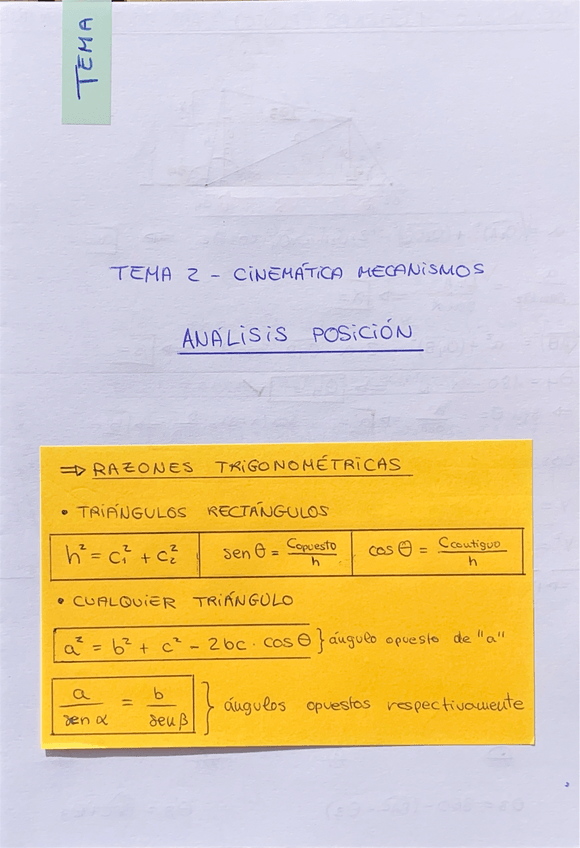 TEMA
TEMA 2 - CINEMÁTICA MECANISMOS
ANÁLISIS POSICIÓN
⇒ RAZONES TRIGONOMÉTRICAS
• TRIÁNGULOS RECTÁNGULOS
h² = c₁² + c₂² | sen θ = Copuesto/h | cos θ = Ccontiguo/h
• CUALQUIER TRIÁNGULO
a² = b² + c² - 2bc · cos θ } ángulo opuesto de "a"
a/sen α = b/sen β } ángulos opuestos respectivamente